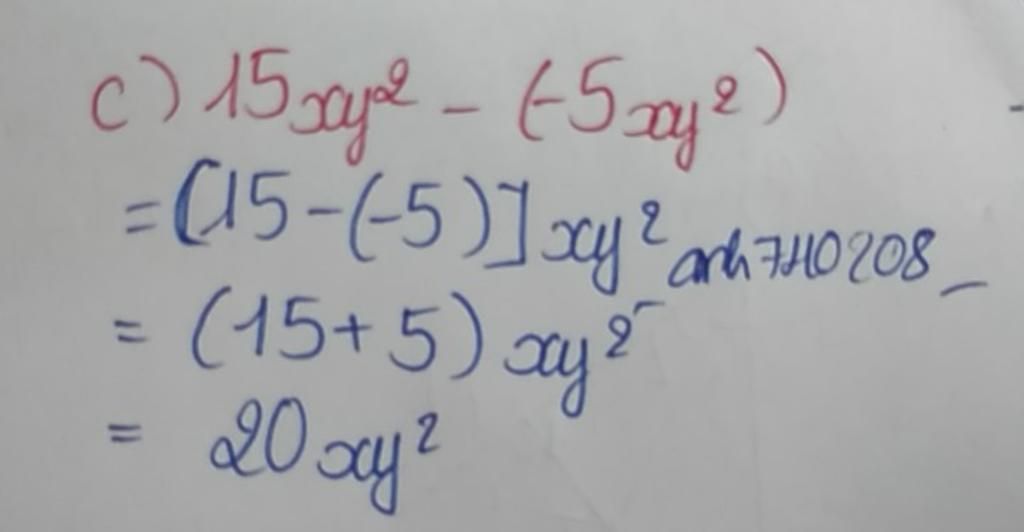 c) 15xy² - (-5xy²)
= [15 - (-5)] xy² anh7410208
= (15 + 5) xy²
= 20xy²